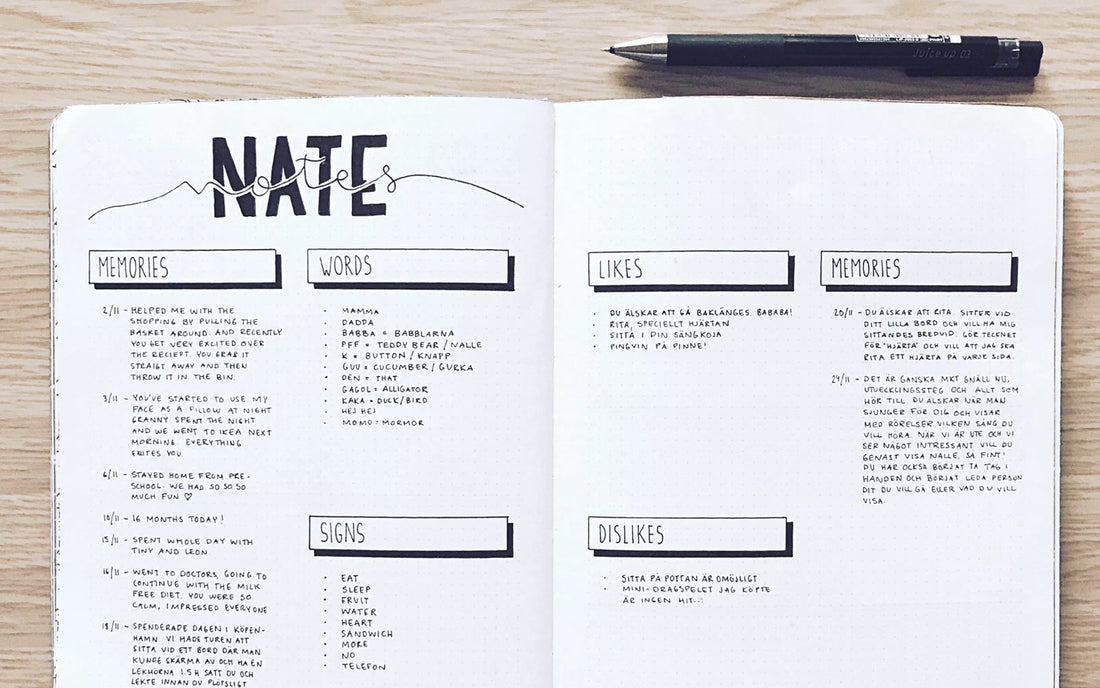 Juice up 03
NATE
notes
MEMORIES
2/11 - HELPED ME WITH THE
SHOPPING BY PULLING THE
BASKET AROUND. AND RECENTLY
YOU GET VERY EXCITED OVER
THE RECIEPT. YOU GRAB IT
STRAIGT AWAY AND THEN
THROW IT IN THE BIN.
3/11 - YOU'VE STARTED TO USE MY
FACE AS A PILLOW AT NIGHT
GRANNY SPENT THE NIGHT
AND WE WENT TO IKEA NEXT
MORNING. EVERYTHING
EXITES YOU.
6/11 - STAYED HOME FROM PRE-
SCHOOL. WE HAD SO SO SO
MUCH FUN ♡
10/11 - 16 MONTHS TODAY!
15/11 - SPENT WHOLE DAY WITH
TINY AND LEON.
16/11 - WENT TO DOCTORS, GOING TO
CONTINUE WITH THE MILK
FREE DIET. YOU WERE SO
CALM, IMPRESSED EVERYONE
18/11 - SPENDERADE DAGEN I KÖPEN-
HAMN. VI HADE TUREN ATT
SITTA VID ETT BORD DÄR MAN
KUNDE SKÄRMA AV OCH HA EN
LEKHÖRNA. 1.5 H SATT DU OCH
LEKTE INNAN DU PLÖTSLIGT
WORDS
· MAMMA
· DADDA
· BABBA = BABBLARNA
· PFF = TEDDY BEAR / NALLE
· K = BUTTON / KNAPP
· GUU = CUCUMBER / GURKA
· DEN = THAT
· GAGOL = ALLIGATOR
· KAKA = DUCK/BIRD
· HEJ HEJ
· MOMO = MORMOR
SIGNS
· EAT
· SLEEP
· FRUIT
· WATER
· HEART
· SANDWICH
· MORE
· NO
· TELEFON
LIKES
· DU ÄLSKAR ATT GÅ BAKLÄNGES. BABABA!
· RITA, SPECIELLT HJÄRTAN
· SITTA I DIN SÄNGKOJA
· PINGVIN PÅ PINNE!
DISLIKES
· SITTA PÅ POTTAN ÄR OMÖJLIGT
· MINI-DRAGSPELET JAG KÖPTE
ÄR INGEN HIT..
MEMORIES
20/11 - DU ÄLSKAR ATT RITA. SITTER VID
DITT LILLA BORD OCH VILL HA MIG
SITTANDES BREDVID. GÖR TECKNET
FÖR "HJÄRTA" OCH VILL ATT JAG SKA
RITA ETT HJÄRTA PÅ VARJE SIDA.
29/11 - DET ÄR GANSKA MKT GNÄLL NU,
UTVECKLINGSSTEG OCH ALLT SOM
HÖR TILL. DU ÄLSKAR NÄR MAN
SJUNGER FÖR DIG OCH VISAR
MED RÖRELSER VILKEN SÅNG DU
VILL HÖRA. NÄR VI ÄR UTE OCH VI
SER NÅGOT INTRESSANT VILL DU
GENAST VISA NALLE, SÅ FINT!
DU HAR OCKSÅ BÖRJAT TA TAG I
HANDEN OCH BÖRJAT LEDA PERSON
DIT DU VILL GÅ ELLER VAD DU VILL
VISA.